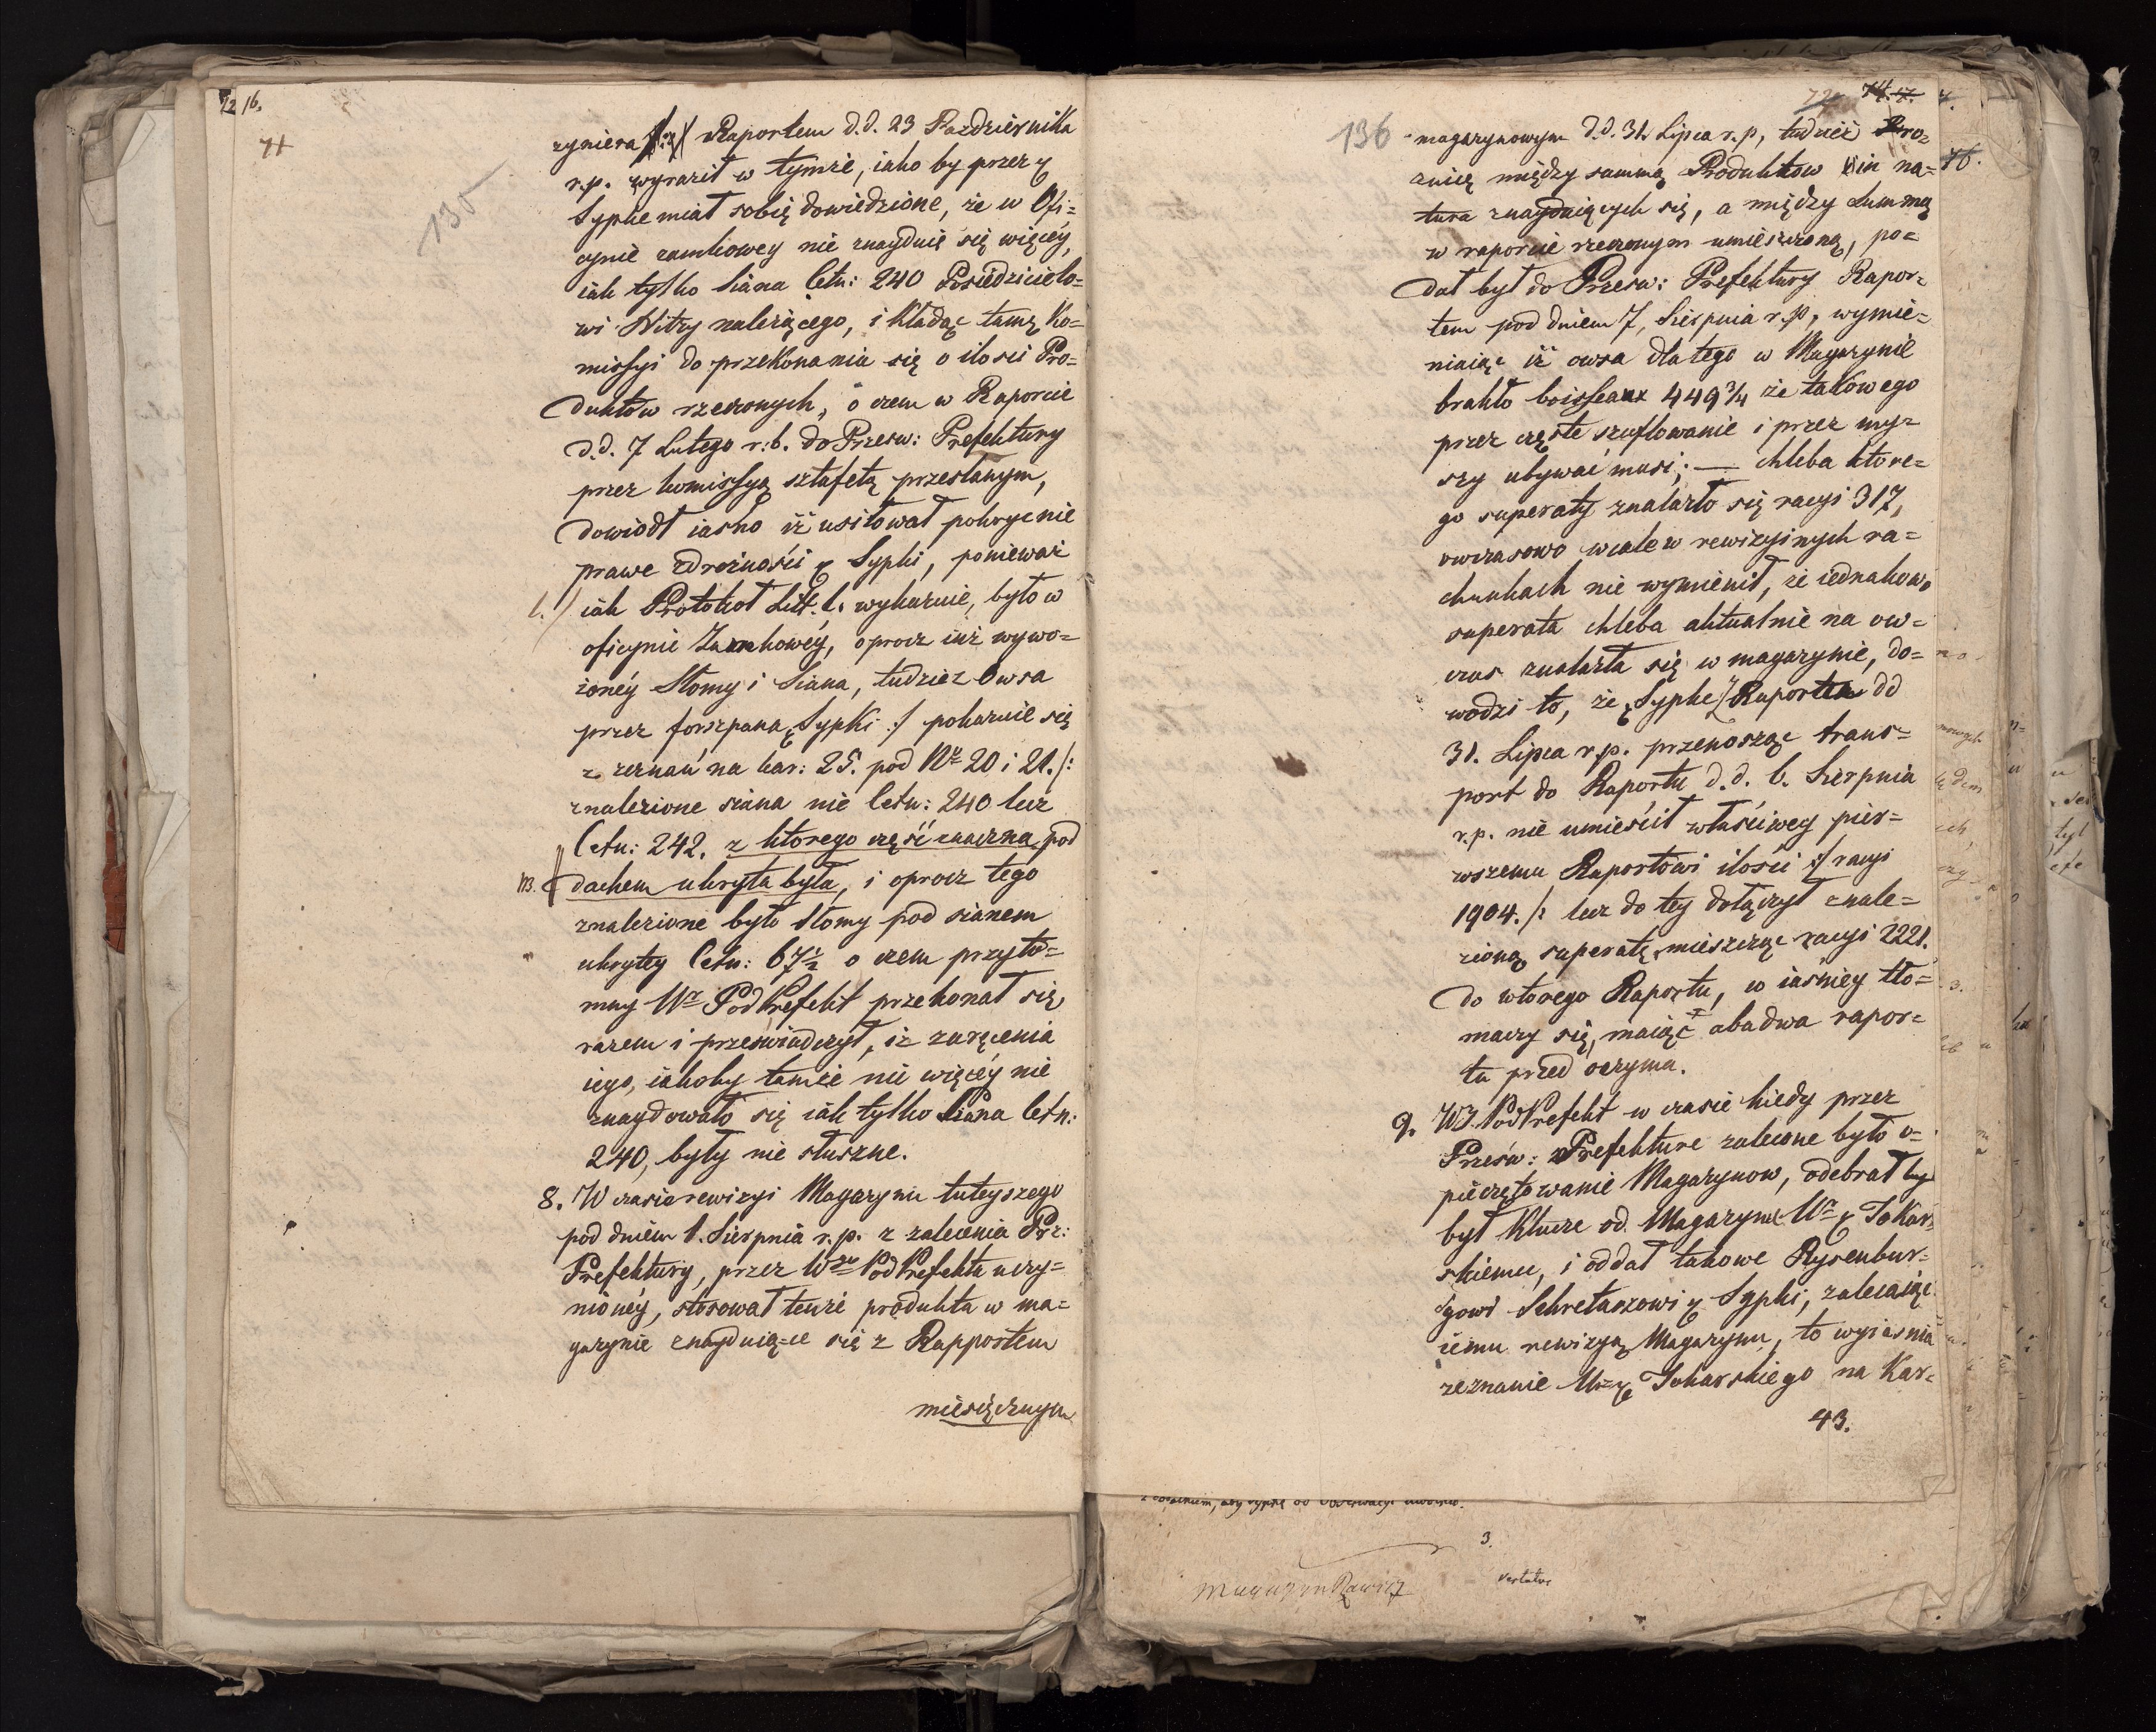 12 16.
71
135
zyniera Raportem d.d. 23 Pazdziernika
r.p. wyraził w tymże, iako by przez
Sypke miał sobię dowiedzione, że w Ofi=
cynie zamkowey nie znayduie się więcéy,
iak tylko Siana Cetn: 240 Posiedziciclo=
wi Nitzy należącego, i kładąc tamę Ko=
missyi do przekonania się o ilosci Pro=
duktów rzeczonych, o czem w Raporcie
d.d. 7 Lutego r:b. do Przesw: Prefektury
przez komissyą sztafetą przesłanym,
dowiodł iasno iż usiłował pokrycie nie
prawe zdrożności Sypki, ponieważ
iak Protokoł Litt. l. wykazuie, było w
oficynie Zamkowéy, oprocz iuż wywo=
żonéy Słomy i Siana, tudziez Owsa
przez forszpana Sypki :/ pokazuie się
z zeznań na kar: 25. pod Nr 20 i 21. /:
znalezione siana nie Cetn: 240 lecz
Cetn: 242. z ktorego część znaczna pod
m. dachem ukryta była, i oprocz tego
znalezione było słomy pod sianem
ukrytey Cetn: 67½ o czem przyto=
mny Wr PodPrefekt przekonał się
razem i przeswiadczył, iż zaręcenia
iego, iakoby tamże nic więcéy nie
znaydowało się iak tylko Siana Cetn:
240, były nie słuszne.
8. W czasie rewizyi Magazynu tuteyszego
pod dniem 1. Sierpnia r.p. z zalecenia Prz:
Prefektury, przez Wgo PodPrefekta uczy=
nionéy, stosował tenże produkta w ma=
gazynie znayduiące się z Rapportem
miesięcznym
72 74. 17. 7.
76.
136
magazynowym d.d. 31. Lipca r.p, tudzież Ro=
żnicę między summą Produktow in na=
tura znayduiących się, a między Summą
w raporcie rzeczonym umieszczoną, po=
dał był do Przesw: Prefektury Rapor=
tem pod dniem 7, Sierpnia r.p, wymie=
niaiąc iż owsa dlatego w Magazynie
brakło boisseaux 449¾ że takowego
przez częste szuflowanie i przez my=
szy ubywać musi; — chleba które=
go superaty znalazło się racyi 317,
owczasowo wcale w rewizyinych ra=
chunkach nie wymienił, że iednakowo
superata chleba aktualnie na ow=
czas znalazła się w magazynie, do=
wodzi to, że Sypke Raportem dd
31. Lipca r.p. przenosząc trans=
port do Raportu d.d. 6. Sierpnia
r.p. nie umieścił właściwey pier=
wszemu Raportowi ilości :/ racyi
1904. /: lecz do tey dołączył znale=
zioną superatę mieszcząc racyi 2221.
do wtorego Raportu, co iaśniey tło=
maczy się, maiąc obadwa rapor=
ta przed oczyma.
9. WJ. PodPrefekt w czasie kiedy przez
Prześw: Prefekturę zalecone było o=
pieczętowanie Magazynow, odebrał by
był klucze od Magazynu Wr Tokar=
skiemu, i oddał takowe Rysenbur=
gowi Sekretarzowi Sypki, zalecaiąc
iemu rewizyą Magazynu, to wyiasnia
zeznanie Tokarskiego na Kar=
43.
3.
Magazyn Rawicz